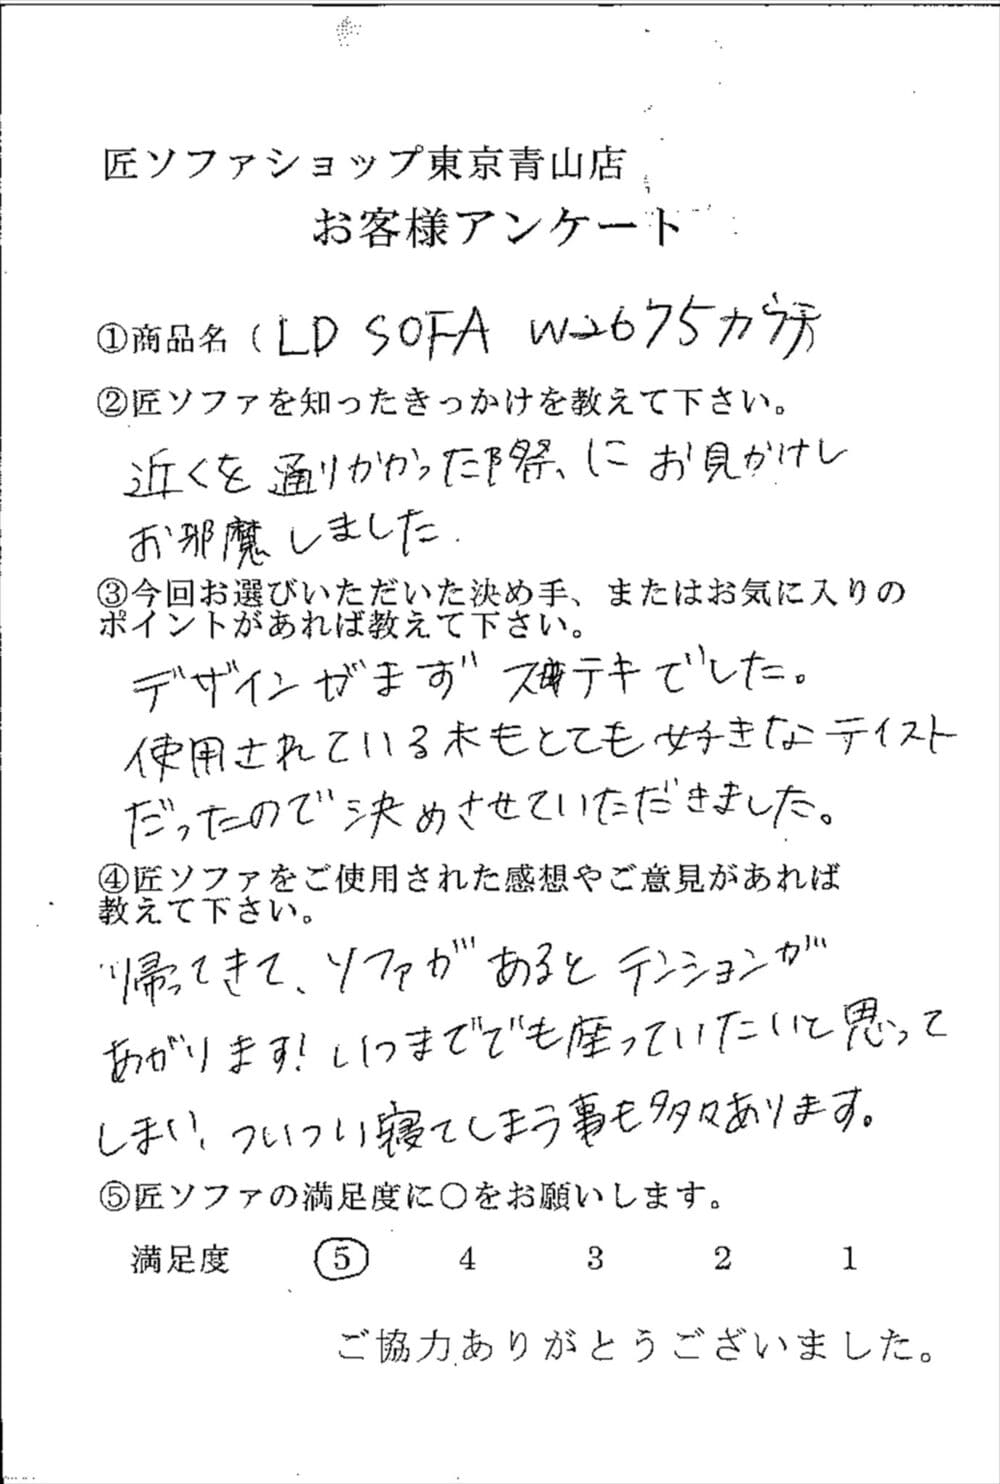 匠ソファショップ東京青山店
お客様アンケート
①商品名（LD SOFA W2675カウチ）
②匠ソファを知ったきっかけを教えて下さい。
近くを通りかかった際、にお見かけし
お邪魔しました.
③今回お選びいただいた決め手、またはお気に入りの
ポイントがあれば教えて下さい。
デザインがまずステキでした。
使用されている木もとても好きなテイスト
だったので決めさせていただきました。
④匠ソファをご使用された感想やご意見があれば
教えて下さい。
帰ってきて、ソファがあるとテンションが
あがります!いつまででも座っていたいと思って
しまい、ついつい寝てしまう事も多々あります。
⑤匠ソファの満足度に○をお願いします。
満足度 5 4 3 2 1
ご協力ありがとうございました。